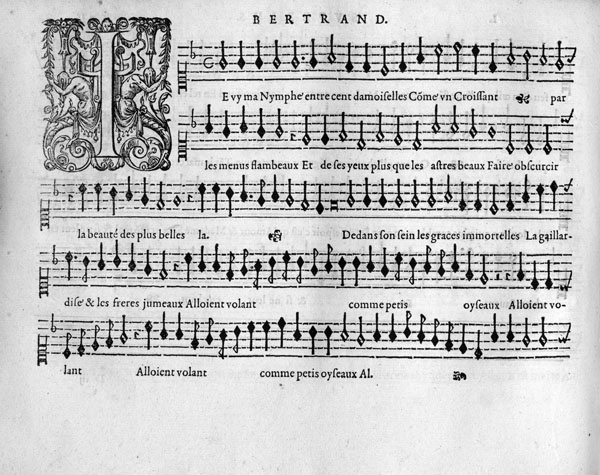 BERTRAND.
IE vy ma Nymphe entre cent damoiselles Cõme vn Croissant par
les menus flambeaux Et de ses yeux plus que les astres beaux Faire obscurcir
la beauté des plus belles la. Dedans son sein les graces immortelles La gaillar-
dise & les freres jumeaux Alloient volant comme petis oyseaux Alloient vo-
lant Alloient volant comme petis oyseaux Al.